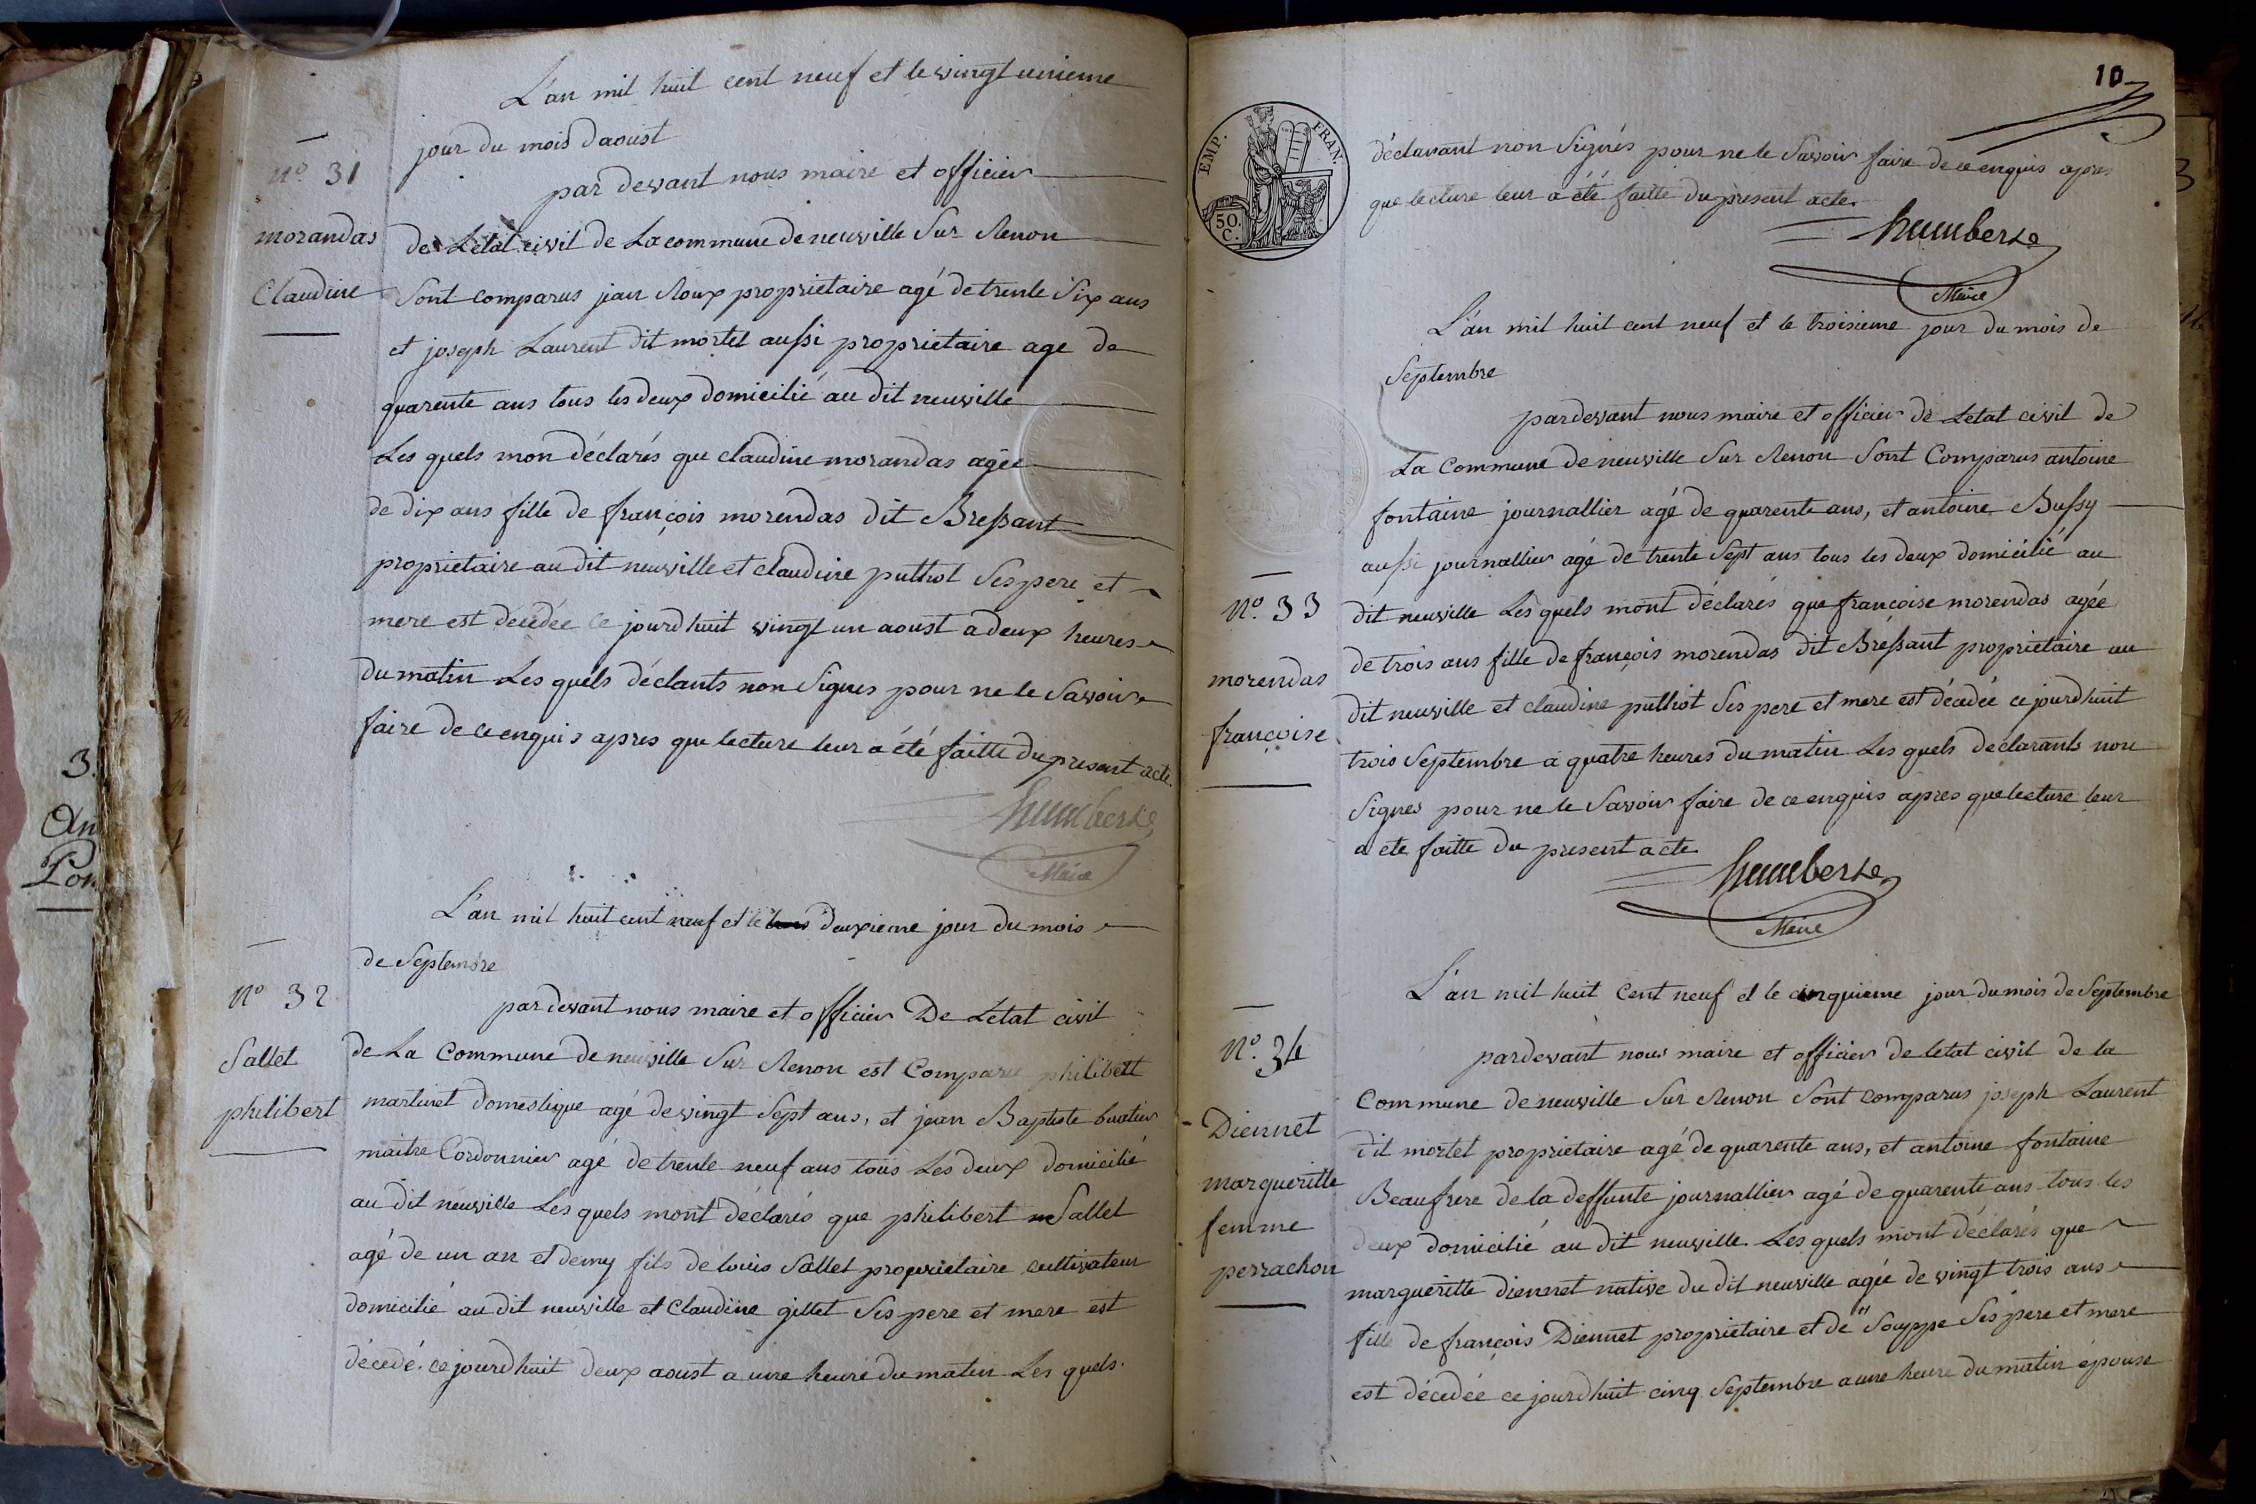 L'an mil huit cent neuf et le vingt unieme
jour du mois daoust
par devant nous maire et officier
de Letat civil de La commune de neuville Sur Renon
Sont comparus jean Roux proprietaire agé de trente Six ans
et joseph Laurent dit mortel aussi proprietaire age de
quarente ans tous les deux domicilié au dit neuville
Les quels mon déclarés que claudine morandas agée
de dix ans fille de françois morendas dit Bressant
proprietaire au dit neuville et claudine puthot Ses pere et
mere est décédée ce jourdhuit vingt un aoust a deux heures
du matin Les quels déclants non Signés pour ne le Savoir
faire de ce enquis apres que lecture leur a été faitte du present acte
humbert
Maire
N.o 31
morandas
Claudine
L'an mil huit cent neuf et le deuxieme jour du mois
de Septembre
par devant nous maire et officier De Letat civil
de La Commune de neuville Sur Renon est Comparu philibert
martinet domestique agé de vingt Sept ans, et jean Baptiste
maitre Cordonnier agé de trente neuf ans tous Les deux domicilié
au dit neuville Les quels mont déclarés que philibert Sallet
agé de un an et demy fils de louis Sallet proprietaire cultivateur
domicilié au dit neuville et Claudine gillet Ses pere et mere est
décedé. ce jourdhuit deux aoust a une heure du matin Les quels.
N.o 32
Sallet
philibert
10
EMP. FRAN.
50. C.
déclarant non Signés pour ne le Savoir faire de ce enquis apres
que lecture leur a été faitte du present acte.
humbert
Maire
L'an mil huit cent neuf et le troisieme jour du mois de
Septembre
pardevant nous maire et officier de Letat civil de
La Commune de neuville Sur Renon Sont Comparus antoine
fontaine journallier agé de quarente ans, et antoine Bussy
aussi journallier agé de trente Sept ans tous les deux domicilié au
dit neuville Les quels mont déclarés que françoise morendas agée
de trois ans fille de françois morendas dit Bréssant proprietaire au
dit neuville et claudine puthot Ses pere et mere est décedée ce jourdhuit
trois Septembre a quatre heures du matin Les quels declarants non
Signes pour ne le Savoir faire de ce enquis apres que lecture leur
a ete faitte du present acte
humbert
Maire
N.o 33
morendas
françoise
L'an mil huit Cent neuf et le cinquieme jour du mois de Septembre
pardevant nous maire et officier de letat civil de la
Commune de neuville Sur Renon Sont comparus joseph Laurent
dit mortel proprietaire agé de quarente ans, et antoine fontaine
Beaufrere de la deffunte journallier agé de quarente ans tous les
deux domicilié au dit neuville Les quels mont déclarés que
margueritte Diennet native du dit neuville agée de vingt trois ans
fille de françois Diennet proprietaire et de " Souppe Ses pere et mere
est décedée ce jourdhuit cinq Septembre a une heure du matin épouse
N.o 34
Diennet
margueritte
femme
perrachon